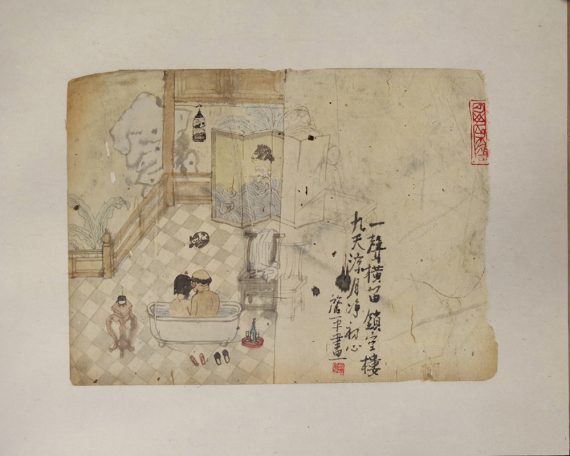 一聲橫笛鎖空樓
九天涼月淨初心
平畫